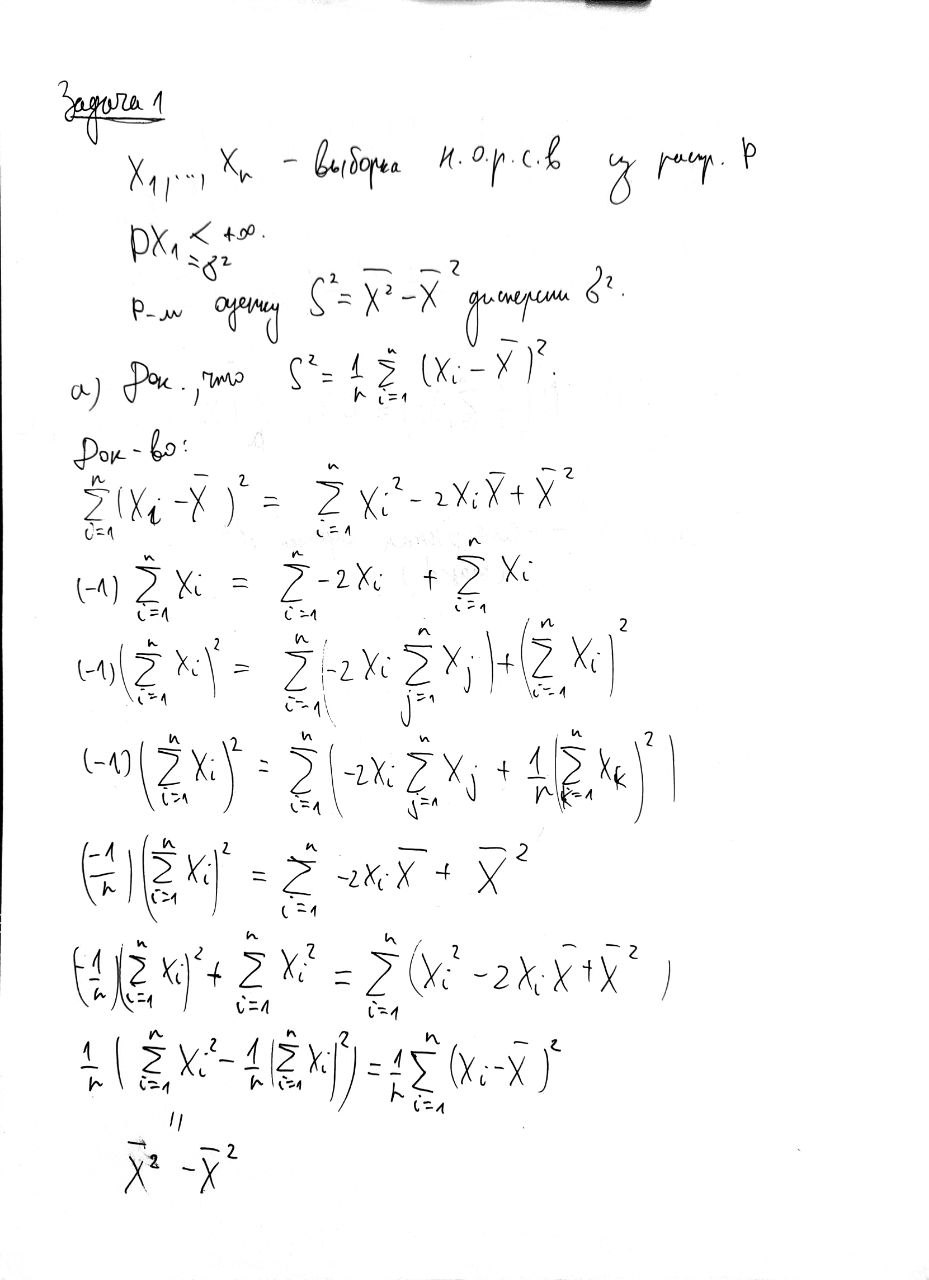 Задача 1
X₁,..., Xₙ – выборка н.о.р.с.в из распр. P
DX₁ < +∞.
= σ²
Р-м оценку S² = \overline{X²} – \overline{X}² дисперсии σ².
а) Док., что S² = \frac{1}{n} \sum_{i=1}^{n} (Xᵢ – \overline{X})².
Док-во:
\sum_{i=1}^{n} (Xᵢ – \overline{X})² = \sum_{i=1}^{n} Xᵢ² – 2Xᵢ\overline{X} + \overline{X}²
(-1) \sum_{i=1}^{n} Xᵢ = \sum_{i=1}^{n} -2Xᵢ + \sum_{i=1}^{n} Xᵢ
(-1) (\sum_{i=1}^{n} Xᵢ)² = \sum_{i=1}^{n} (-2Xᵢ \sum_{j=1}^{n} Xⱼ) + (\sum_{i=1}^{n} Xᵢ)²
(-1) (\sum_{i=1}^{n} Xᵢ)² = \sum_{i=1}^{n} (-2Xᵢ \sum_{j=1}^{n} Xⱼ + \frac{1}{n} (\sum_{k=1}^{n} Xₖ)²)
(\frac{-1}{n}) (\sum_{i=1}^{n} Xᵢ)² = \sum_{i=1}^{n} -2Xᵢ\overline{X} + \overline{X}²
(-\frac{1}{n}) (\sum_{i=1}^{n} Xᵢ)² + \sum_{i=1}^{n} Xᵢ² = \sum_{i=1}^{n} (Xᵢ² – 2Xᵢ\overline{X} + \overline{X}²)
\frac{1}{n} (\sum_{i=1}^{n} Xᵢ² – \frac{1}{n} (\sum_{i=1}^{n} Xᵢ)²) = \frac{1}{n} \sum_{i=1}^{n} (Xᵢ – \overline{X})²
||
\overline{X²} – \overline{X}²